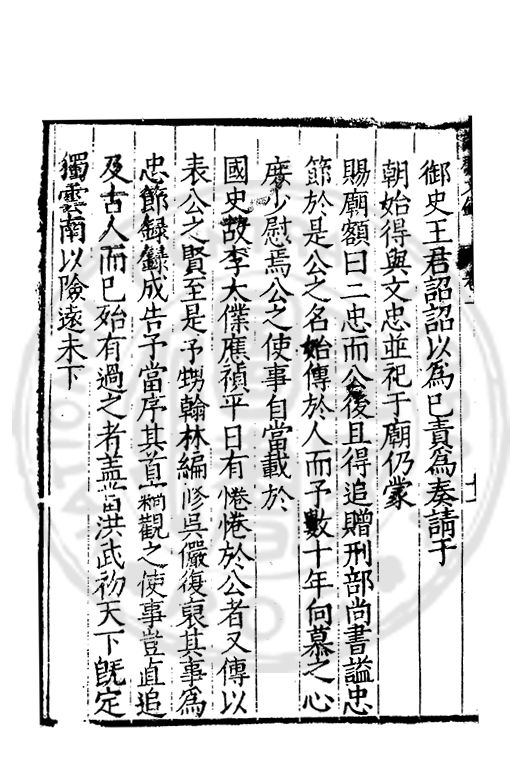 御史王君詔詔以為己責為奏請于
朝始得與文忠並祀于廟仍蒙
賜廟額曰二忠而公後且得追贈刑部尚書謚忠
節於是公之名始傳於人而予數十年向慕之心
庶少慰焉公之使事自當載於
國史故李太僕應禎平日有惓惓於公者又傳以
表公之賢至是予甥翰林編脩吳儼復裒其事為
忠節録録成告予當序其首稱觀之使事豈直追
及古人而已殆有過之者盖當洪武初天下旣定
獨雲南以險遠未下